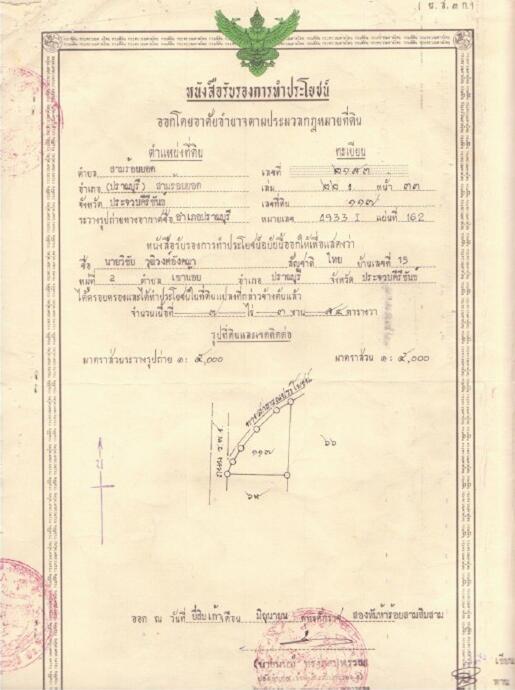 ( น.ส.๓ ก.)
หนังสือรับรองการทำประโยชน์
ออกโดยอาศัยอำนาจตามประมวลกฎหมายที่ดิน
ตำแหน่งที่ดิน ทะเบียน
ตำบล สามร้อยยอด เลขที่ ๒๑๕๓
อำเภอ (ปราณบุรี) สามร้อยยอด เล่ม ๒๒ หน้า ๓๓
จังหวัด ประจวบคีรีขันธ์ เลขที่ดิน ๑๑๗
ระวางรูปถ่ายทางอากาศชื่อ อำเภอปราณบุรี หมายเลข 4933 I แผ่นที่ 162
หนังสือรับรองการทำประโยชน์ฉบับนี้ออกให้เพื่อแสดงว่า
ชื่อ นายวิชัย สัญชาติ ไทย บ้านเลขที่ 15
หมู่ที่ 2 ตำบล เขาน้อย อำเภอ ปราณบุรี จังหวัด ประจวบคีรีขันธ์
ได้ครอบครองและได้ทำประโยชน์ในที่ดินแปลงที่กล่าวข้างต้นแล้ว
จำนวนเนื้อที่ ๓ ไร่ ๓ งาน ๕๔ ตารางวา
รูปที่ดินและเขตติดต่อ
มาตราส่วนระวางรูปถ่าย ๑: ๕,๐๐๐ มาตราส่วน ๑: ๕,๐๐๐
ทางสาธารณประโยชน์
ถนน ร.พ.ช.
๑๑๗
๖๖
น
ออก ณ วันที่ ยี่สิบเก้า เดือน มิถุนายน พุทธศักราช สองพันห้าร้อยสามสิบสาม
เขียน
ทาน